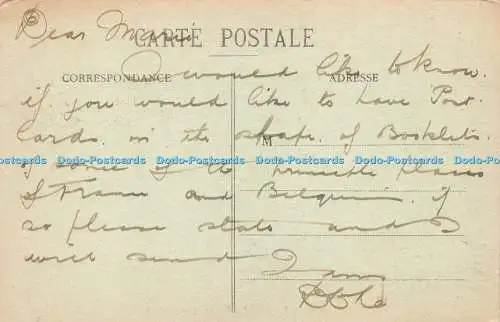 Dear Marie
CARTE POSTALE
CORRESPONDANCE
ADRESSE
I would like to know
if you would like to have Post
Cards in the shape of Booklets
M
Dodo-Postcards Dodo-Postcards Dodo-Postcards Dodo-Postcards Dodo-Postcards Dodo-Postcards
of some of the principle places
of France and Belguim if
so please state and I
will send I am